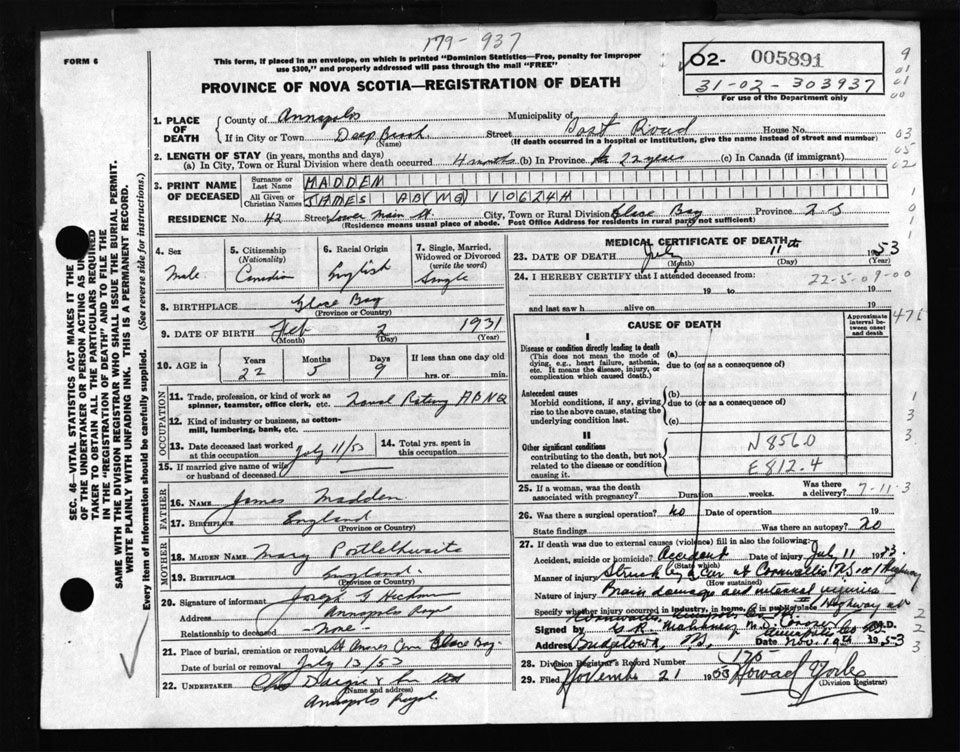 179-937
FORM 6
This form, if placed in an envelope, on which is printed "Dominion Statistics—Free, penalty for improper
use $300," and properly addressed will pass through the mail "FREE"
02- 005891
31-02-303937
For use of the Department only
PROVINCE OF NOVA SCOTIA—REGISTRATION OF DEATH
1. PLACE OF DEATH
County of Annapolis Municipality of
If in City or Town Deep Brook Street Post Road House No.
(Name) (If death occurred in a hospital or institution, give the name instead of street and number)
2. LENGTH OF STAY (in years, months and days)
(a) In City, Town or Rural Division where death occurred 4 months (b) In Province 22 years (c) In Canada (if immigrant)
3. PRINT NAME OF DECEASED
Surname or Last Name MADDEN
All Given or Christian Names JAMES ABVMQ 10624H
RESIDENCE No. 42 Street Lower Main St. City, Town or Rural Division Glace Bay Province N.S
(Residence means usual place of abode. Post Office Address for residents in rural parts not sufficient)
4. Sex Male
5. Citizenship (Nationality) Canadian
6. Racial Origin English
7. Single, Married, Widowed or Divorced (write the word) Single
8. BIRTHPLACE Glace Bay
(Province or Country)
9. DATE OF BIRTH Feb 2 1931
(Month) (Day) (Year)
10. AGE in Years 22 Months 5 Days 9 If less than one day old hrs. or min.
OCCUPATION
11. Trade, profession, or kind of work as spinner, teamster, office clerk, etc. Naval Rating ABNQ
12. Kind of industry or business, as cotton-mill, lumbering, bank, etc.
13. Date deceased last worked at this occupation July 11/53
14. Total yrs. spent in this occupation
15. If married give name of wife or husband of deceased
FATHER
16. NAME James Madden
17. BIRTHPLACE England
(Province or Country)
MOTHER
18. MAIDEN NAME Mary Postlethwaite
19. BIRTHPLACE England
(Province or Country)
20. Signature of informant Joseph E Hickman
Address Annapolis Royal
Relationship to deceased None
21. Place of burial, cremation or removal Glace Bay
Date of burial or removal July 13/53
22. UNDERTAKER
(Name and address)
Annapolis Royal
MEDICAL CERTIFICATE OF DEATH
23. DATE OF DEATH July 11th 1953
(Month) (Day) (Year)
24. I HEREBY CERTIFY that I attended deceased from:
22-5-09-00
19 to 19
and last saw h alive on 19
476
CAUSE OF DEATH
Approximate interval between onset and death
I
Disease or condition directly leading to death (a)
(This does not mean the mode of dying, e.g., heart failure, asthenia, etc. It means the disease, injury, or complication which caused death.)
due to (or as a consequence of)
Antecedent causes (b)
Morbid conditions, if any, giving rise to the above cause, stating the underlying condition last.
due to (or as a consequence of)
(c)
II
Other significant conditions
contributing to the death, but not related to the disease or condition causing it.
N856.0
E812.4
25. If a woman, was the death associated with pregnancy? Duration weeks. Was there a delivery?
7-11-3
26. Was there a surgical operation? No Date of operation 19
State findings Was there an autopsy? No
27. If death was due to external causes (violence) fill in also the following:
Accident, suicide or homicide? Accident Date of injury July 11 1953.
(State which)
Manner of injury Struck by a car at Cornwallis NS on 1 Highway
(How sustained)
Nature of injury Brain damage and internal injuries
Specify whether injury occurred in industry, in home, or in public place Highway at
Cornwallis, Annapolis Co
Signed by M.D.
Address Bridgetown, NS, Date Nov. 19th 1953
28. Division Registrar's Record Number 175
29. Filed November 21 1953 Howard Yorke
(Division Registrar)
SEC. 46—VITAL STATISTICS ACT MAKES IT THE
OF THE UNDERTAKER OR PERSON ACTING AS UN
TAKER TO OBTAIN ALL THE PARTICULARS REQUIRED
IN THE "REGISTRATION OF DEATH" AND TO FILE THE
SAME WITH THE DIVISION REGISTRAR WHO SHALL ISSUE THE BURIAL PERMIT.
WRITE PLAINLY WITH UNFADING INK. THIS IS A PERMANENT RECORD.
Every item of information should be carefully supplied. (See reverse side for instructions.)